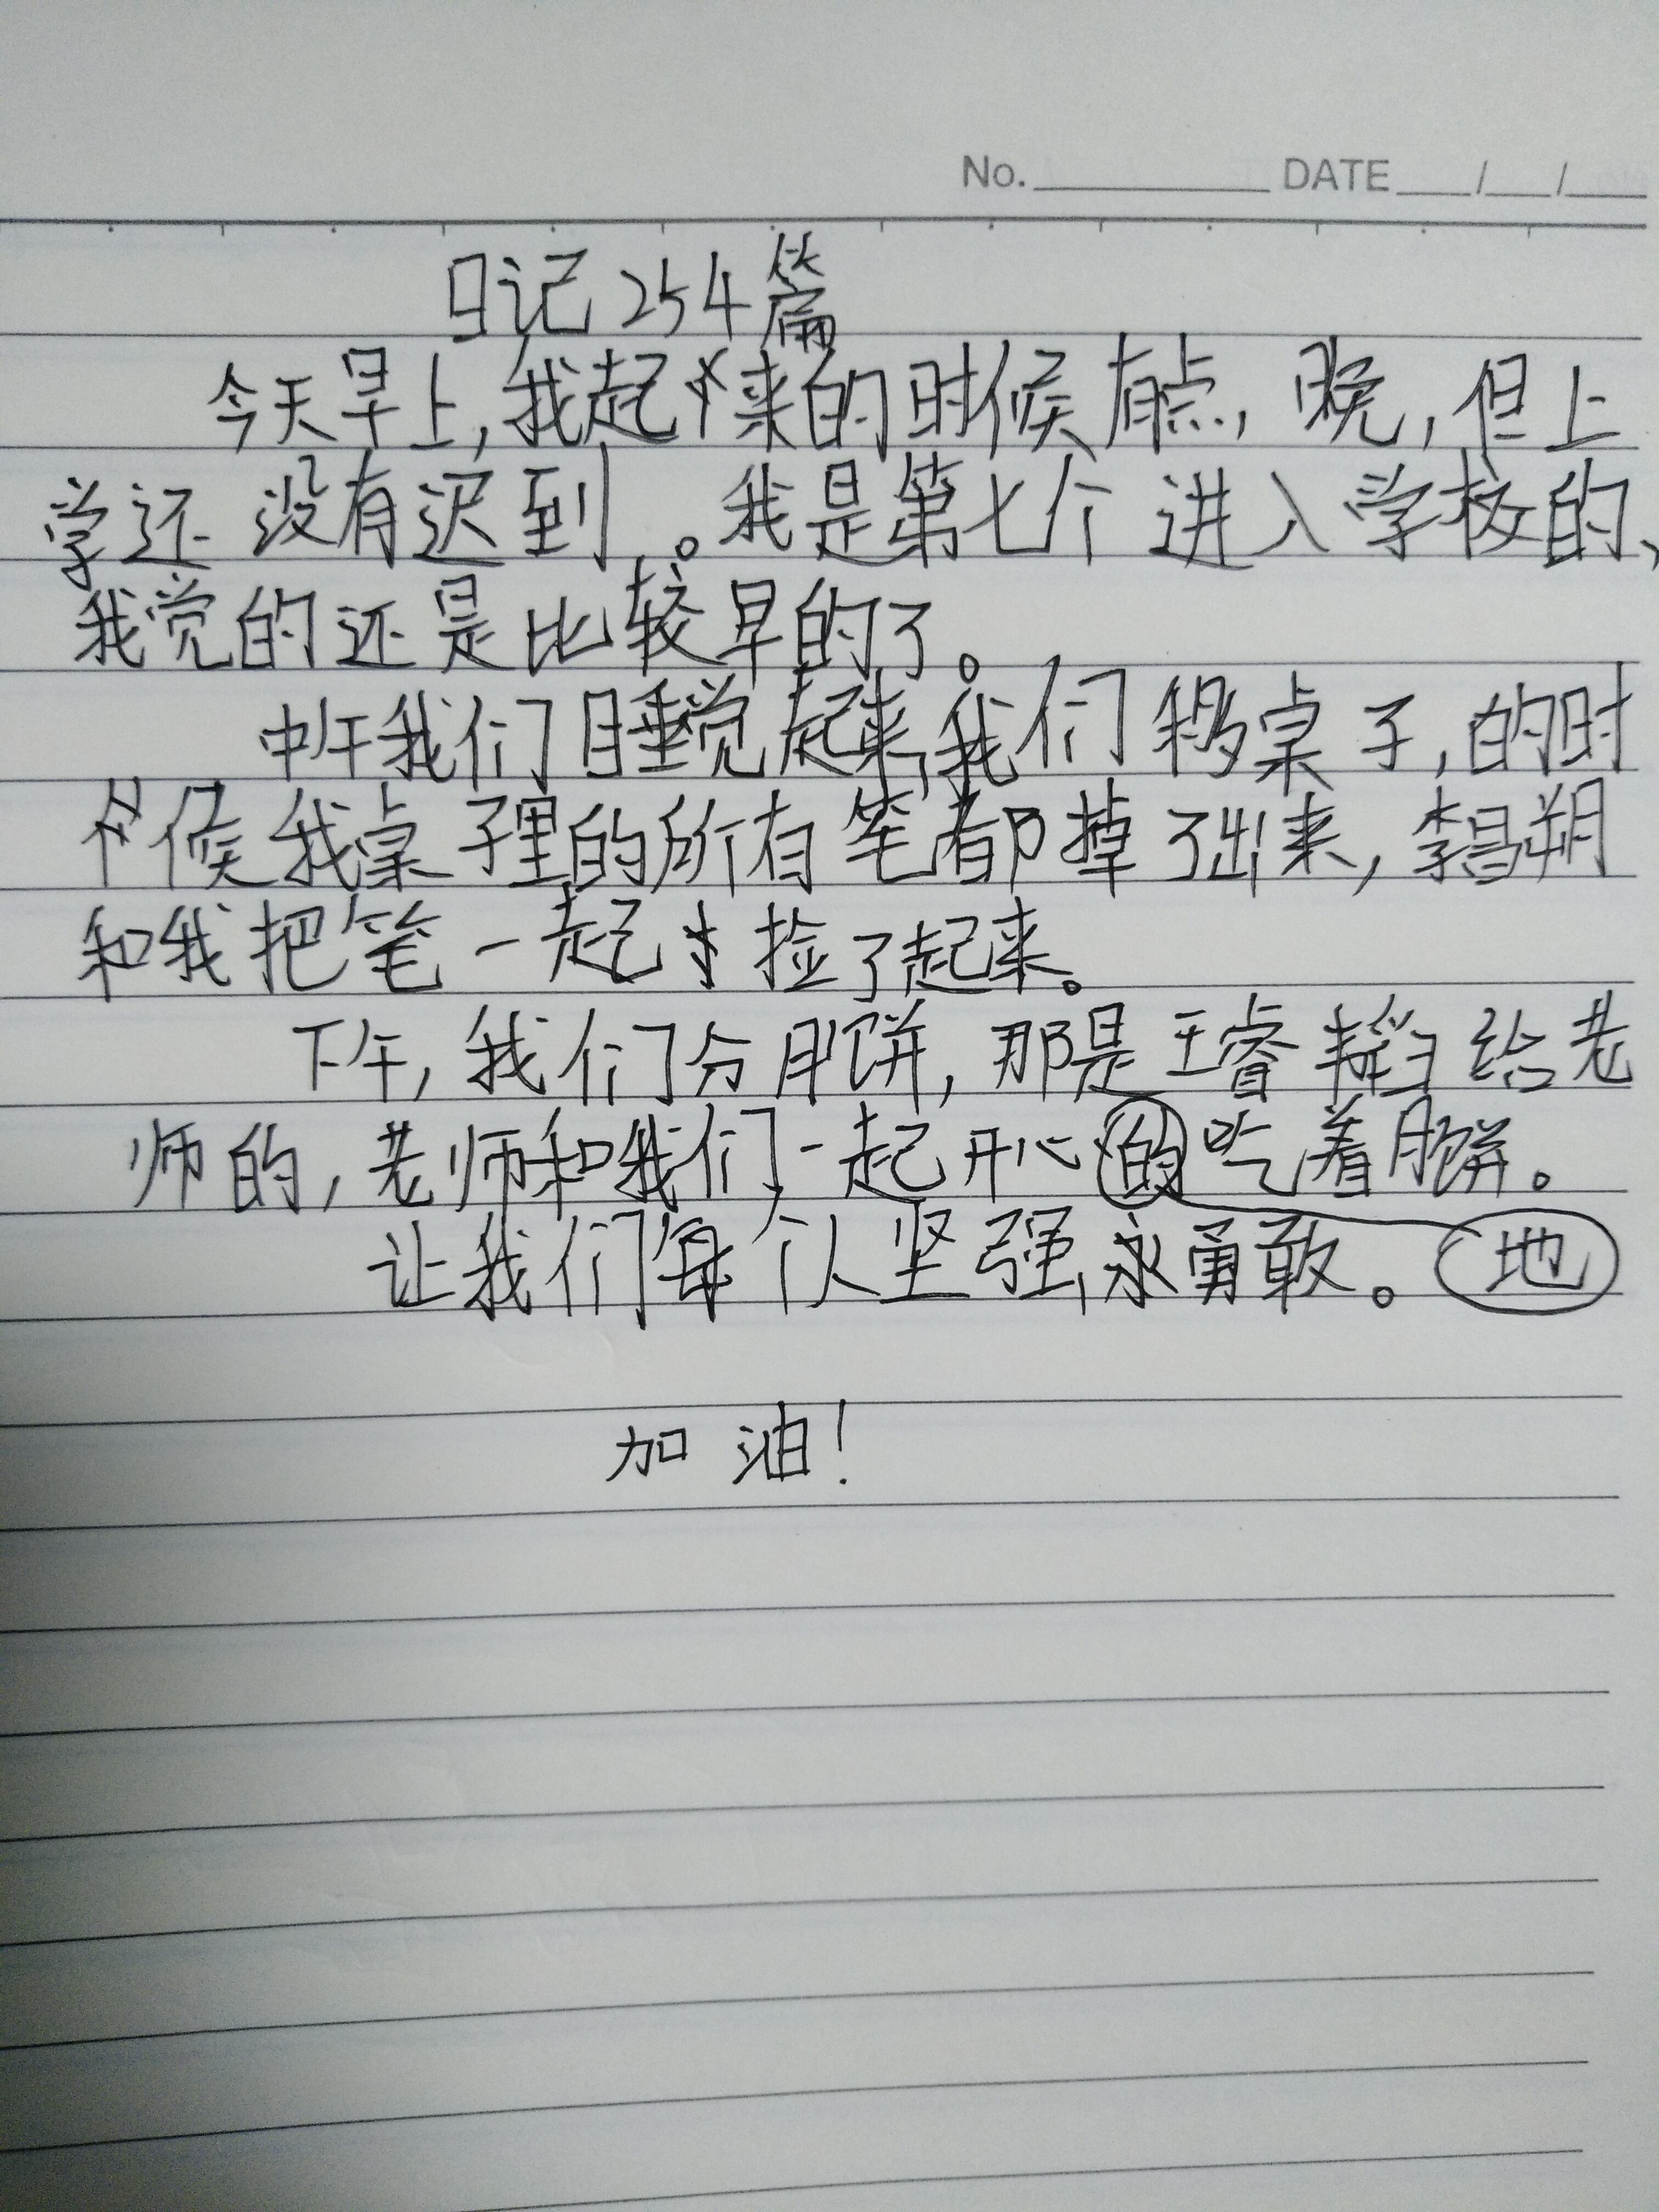 No. DATE / /
日记254篇
今天早上,我起来的时候有点,晚,但上
学还没有迟到。我是第七个进入学校的、
我觉的还是比较早的了。
中午我们睡觉起来,我们移桌子,的时
候我桌子里的所有笔都掉了出来,李昌朔
和我把笔一起捡了起来。
下午,我们分月饼,那是王睿韬给老
师的,老师和我们一起开心的吃着月饼。
让我们每个人坚强,永勇敢。 地
加油!